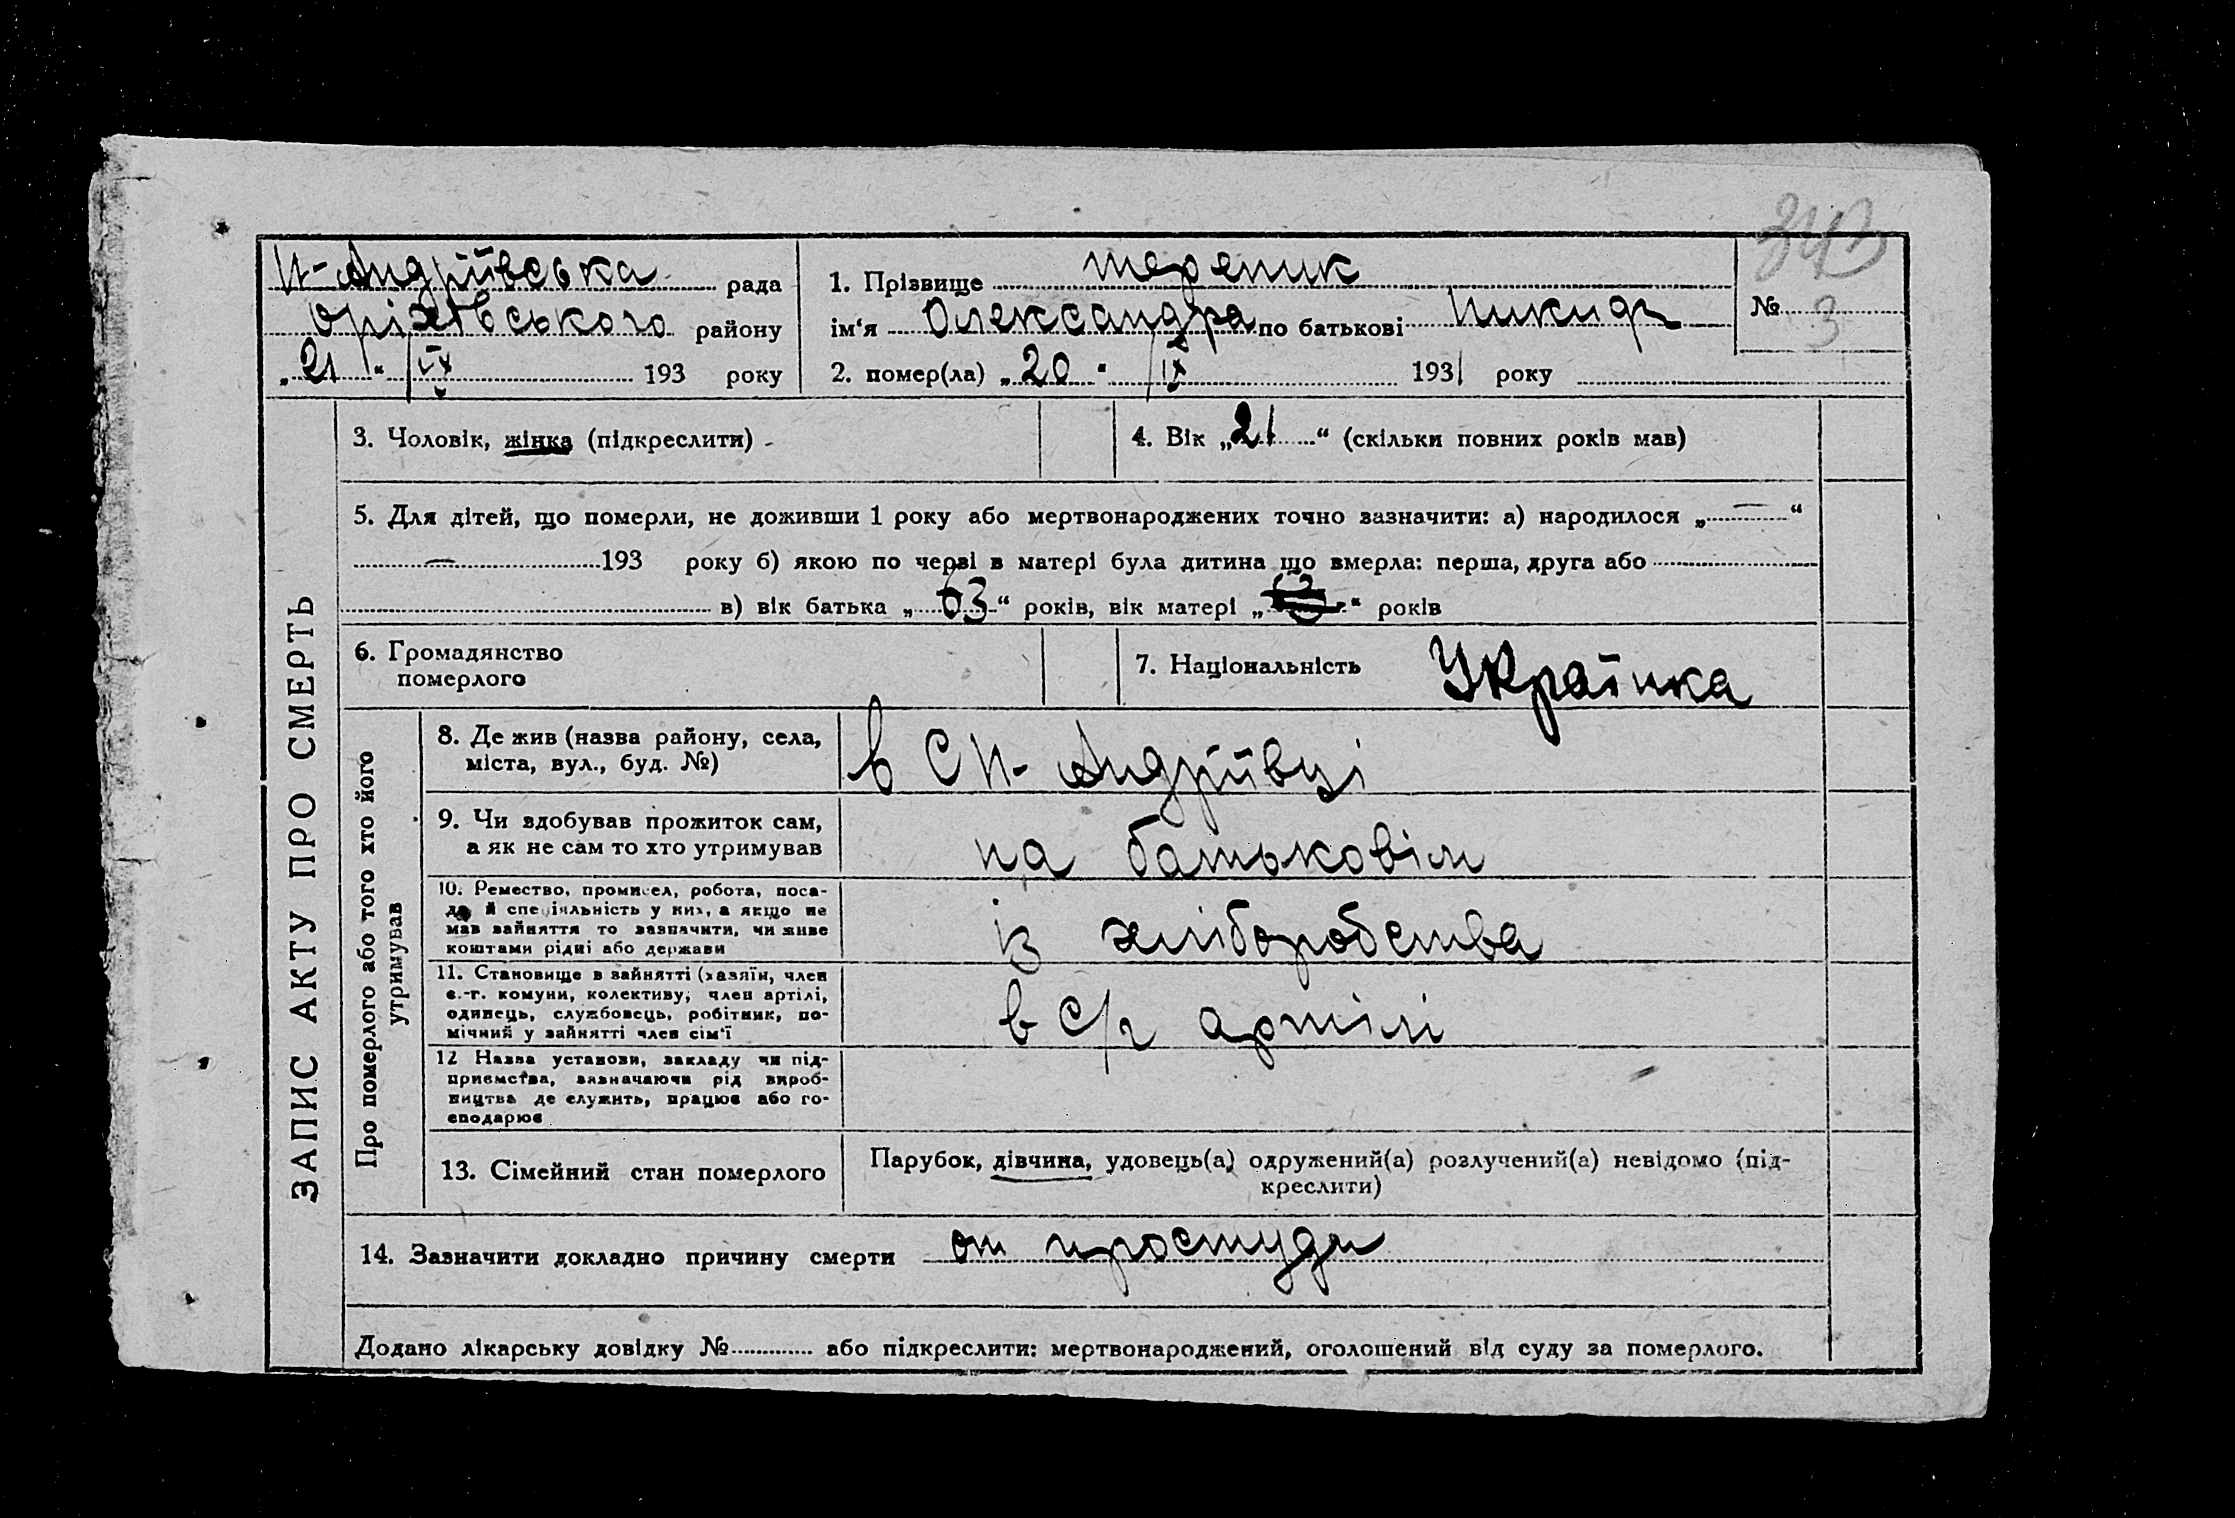 343
Н-Андріївська рада
Оріхівського району
„21“ /IX 193 року
1. Прізвище терепик
ім‘я Олександра по батькові Никидз
2. помер(ла) „20“ /IX 1931 року
№ 3
ЗАПИС АКТУ ПРО СМЕРТЬ
3. Чоловік, жінка (підкреслити)
4. Вік „21“ (скільки повних років мав)
5. Для дітей, що померли, не доживши 1 року або мертвонароджених точно зазначити: а) народилося „—“
— 193 року б) якою по черві в матері була дитина що вмерла: перша, друга або
в) вік батька „63“ років, вік матері „ “ років
6. Громадянство
померлого
7. Національність Українка
Про померлого або того хто його
утримував
8. Де жив (назва району, села,
міста, вул., буд. №)
в С Н-Андріївці
9. Чи вдобував прожиток сам,
а як не сам то хто утримував
на батьковім
10. Ремество, промисел, робота, поса-
да й спеціяльність у них, а якщо не
мав зайняття то зазначити, чи живе
коштами рідні або держави
із хліборобства
11. Становище в зайнятті (хазяїн, член
с.-г. комуни, колективу, член артілі,
одинець, службовець, робітник, по-
мічний у зайнятті член сім‘ї
в С/г артілі
12 Назва установи, закладу чи під-
приємства, зазначаючи рід вироб-
ництва де служить, працює або го-
сподарює
13. Сімейний стан померлого
Парубок, дівчина, удовець(а) одружений(а) розлучений(а) невідомо (під-
креслити)
14. Зазначити докладно причину смерти от простуди
Додано лікарську довідку № або підкреслити: мертвонароджений, оголошений від суду за померлого.